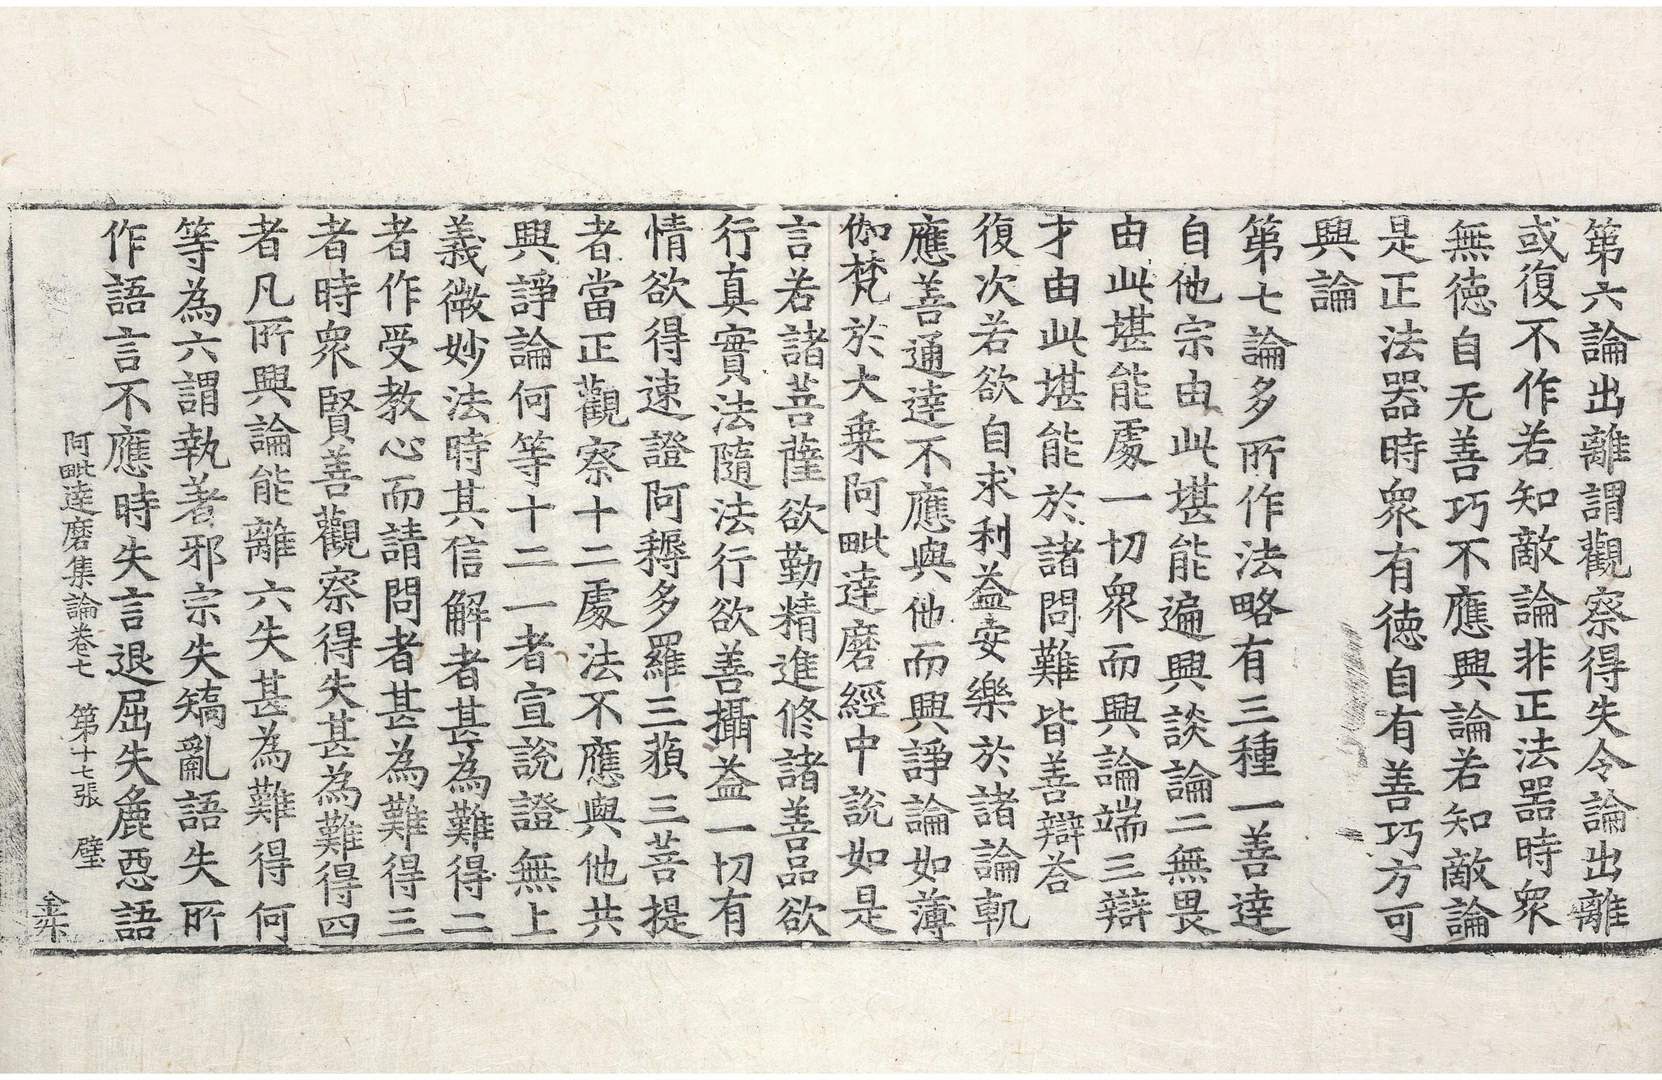 第六論出離謂觀察得失令論出離
或復不作若知敵論非正法器時衆
無德自无善巧不應興論若知敵論
是正法器時衆有德自有善巧方可
興論
第七論多所作法略有三種一善達
自他宗由此堪能遍興談論二無畏
由此堪能處一切衆而興論端三辯
才由此堪能於諸問難皆善辯荅
復次若欲自求利益安樂於諸論軌
應善通達不應與他而興諍論如薄
伽梵於大乗阿毗達磨經中說如是
言若諸菩薩欲勤精進修諸善品欲
行真實法隨法行欲善攝益一切有
情欲得速證阿耨多羅三藐三菩提
者當正觀察十二處法不應與他共
興諍論何等十二一者宣說證無上
義微妙法時其信解者甚為難得二
者作受教心而請問者甚為難得三
者時衆賢善觀察得失甚為難得四
者凡所興論能離六失甚為難得何
等為六謂執著邪宗失矯亂語失所
作語言不應時失言退屈失麁惡語
阿毗達磨集論卷七 第十七張 璧